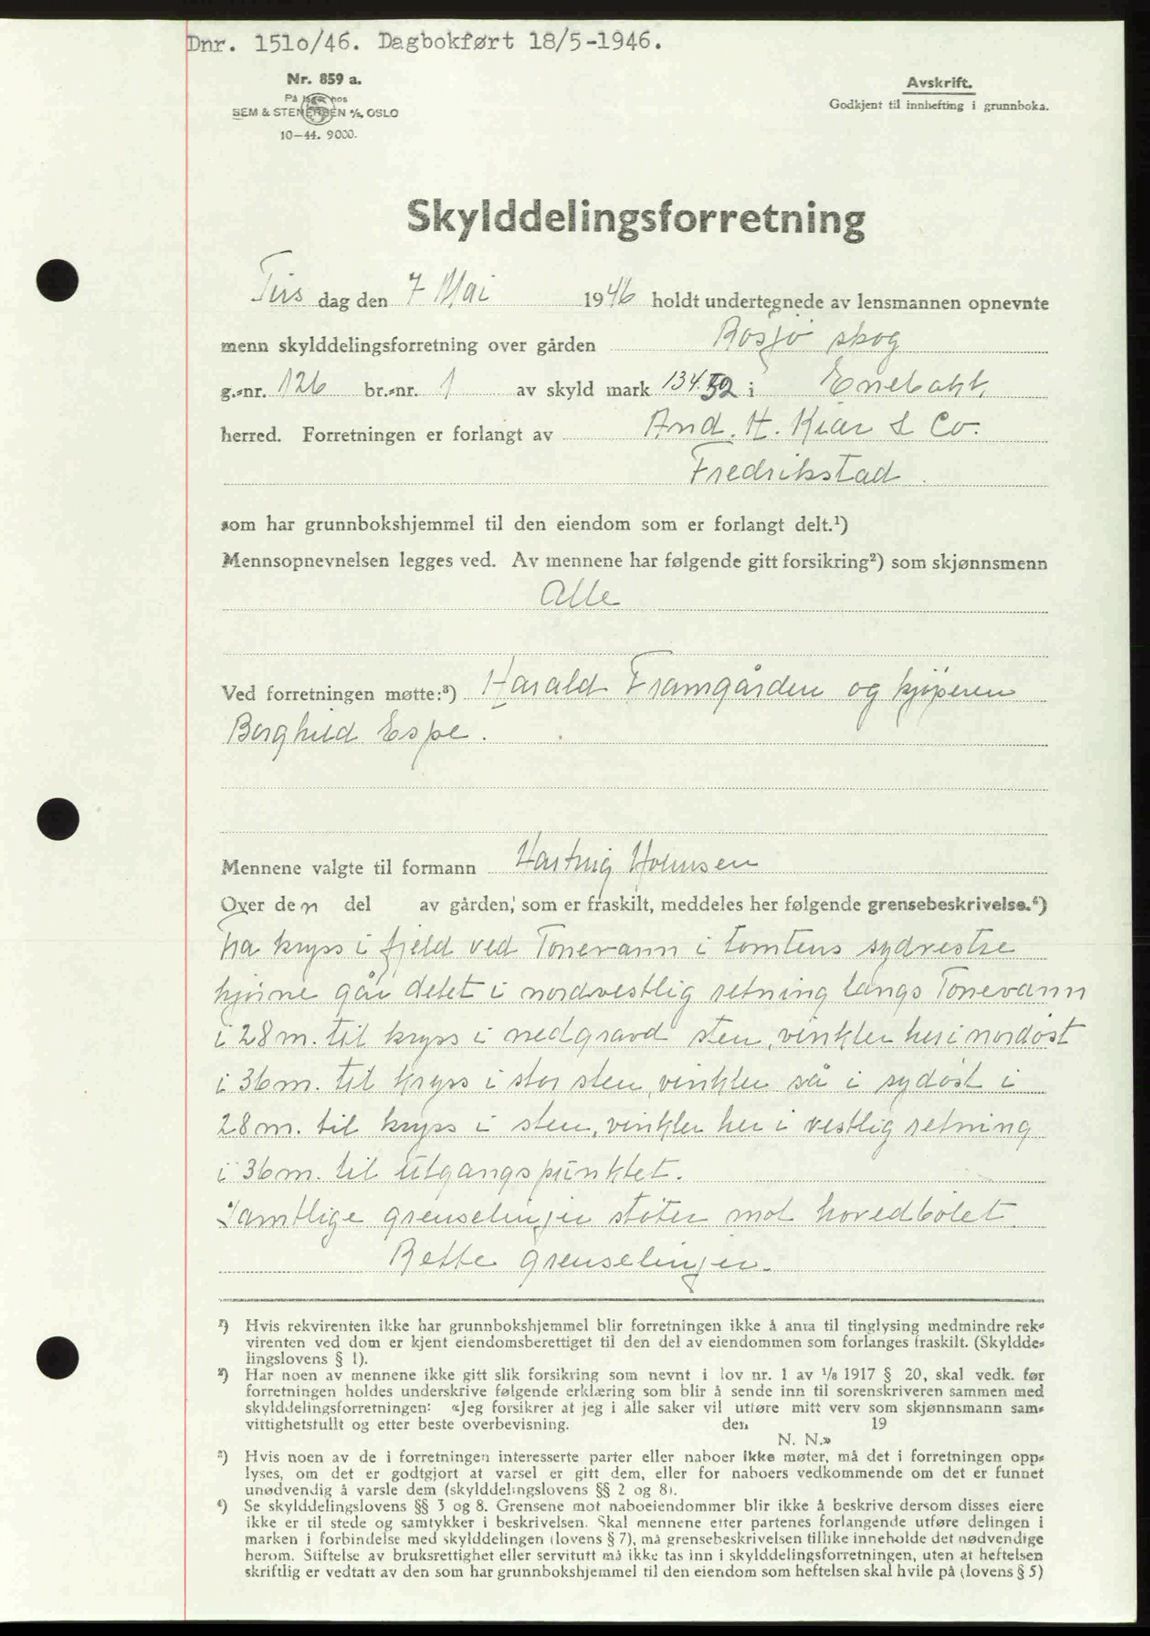 Dnr. 1510/46. Dagbokført 18/5-1946.
Nr. 859 a.
På lager hos
SEM & STENERSEN A/S, OSLO
10-44. 9000.
Avskrift.
Godkjent til innhefting i grunnboka.
Skylddelingsforretning
Tirs dag den 7 Mai 1946 holdt undertegnede av lensmannen opnevnte
menn skylddelingsforretning over gården Rosjø skog
g.-nr. 126 br.-nr. 1 av skyld mark 134.52 i Enebakk
herred. Forretningen er forlangt av And. H. Kiær & Co.
Fredrikstad.
som har grunnbokshjemmel til den eiendom som er forlangt delt.¹)
Mennsopnevnelsen legges ved. Av mennene har følgende gitt forsikring²) som skjønnsmenn
Alle
Ved forretningen møtte:³) Harald Framgården og kjøperen
Borghild Espe.
Mennene valgte til formann Hartvig Holmsen
Over den del av gården, som er fraskilt, meddeles her følgende grensebeskrivelse.⁴)
Fra kryss i fjeld ved Tonevann i tomtens sydvestre
hjørne går delet i nordvestlig retning langs Tonevann
i 28 m. til kryss i nedgravd sten, vinkler her i nordøst
i 36 m. til kryss i stor sten, vinkler så i sydøst i
28 m. til kryss i sten, vinkler her i vestlig retning
i 36 m. til utgangspunktet.
Samtlige grenselinjer støter mot hovedbølet.
Rette grenselinjer.
¹) Hvis rekvirenten ikke har grunnbokshjemmel blir forretningen ikke å anta til tinglysing medmindre rek-
virenten ved dom er kjent eiendomsberettiget til den del av eiendommen som forlanges fraskilt. (Skyldde-
lingslovens § 1).
²) Har noen av mennene ikke gitt slik forsikring som nevnt i lov nr. 1 av 1/6 1917 § 20, skal vedk. før
forretningen holdes underskrive følgende erklæring som blir å sende inn til sorenskriveren sammen med
skylddelingsforretningen: «Jeg forsikrer at jeg i alle saker vil utføre mitt verv som skjønnsmann sam-
vittighetsfullt og etter beste overbevisning. den 19
N. N.»
³) Hvis noen av de i forretningen interesserte parter eller naboer ikke møter, må det i forretningen opp-
lyses, om det er godtgjort at varsel er gitt dem, eller for naboers vedkommende om det er funnet
unødvendig å varsle dem (skylddelingslovens §§ 2 og 8).
⁴) Se skylddelingslovens §§ 3 og 8. Grensene mot naboeiendommer blir ikke å beskrive dersom disses eiere
ikke er til stede og samtykker i beskrivelsen. Skal mennene etter partenes forlangende utføre delingen i
marken i forbindelse med skylddelingen (lovens § 7), må grensebeskrivelsen tillike inneholde det nødvendige
herom. Stiftelse av bruksrettighet eller servitutt må ikke tas inn i skylddelingsforretningen, uten at heftelsen
skriftlig er vedtatt av den som har grunnbokshjemmel til den eiendom som heftelsen skal hvile på (lovens § 5)